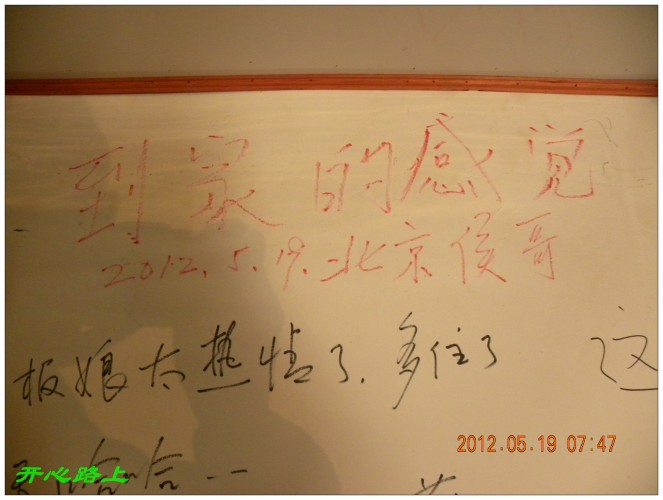 到家的感觉
2012.5.19.北京侯哥
板娘太热情了.多住了 这
2012.05.19 07:47
开心路上